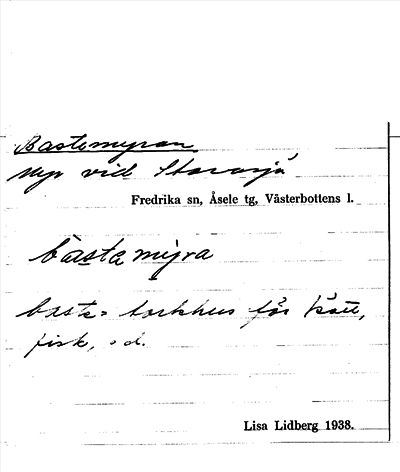 Bastemyran
myr vid Storsjö
Fredrika sn, Åsele tg, Västerbottens l.
basta mìgra
basta= torkhus för kött,
fisk, o d.
Lisa Lidberg 1938.